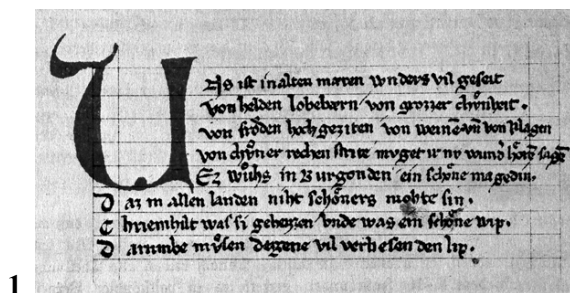 UNs ist in alten mæren wnders vil geseit
von helden lobebærn von grozzer chuͦnheit.
von froͤden hochgeziten von weinē vn̄ von klagen
von chuͦner rechen strite mvget ir nv wundˀ hoͤrē sagē
Ez wuͦhs in Burgonden ein schoͤne magedin.
Daz in allen landen niht schoͤners mohte sin.
Chriemhilt was si geheizzen vnde was ein schoͤne wip.
Darumbe mvͤsen degene vil verliesen den lip.
1